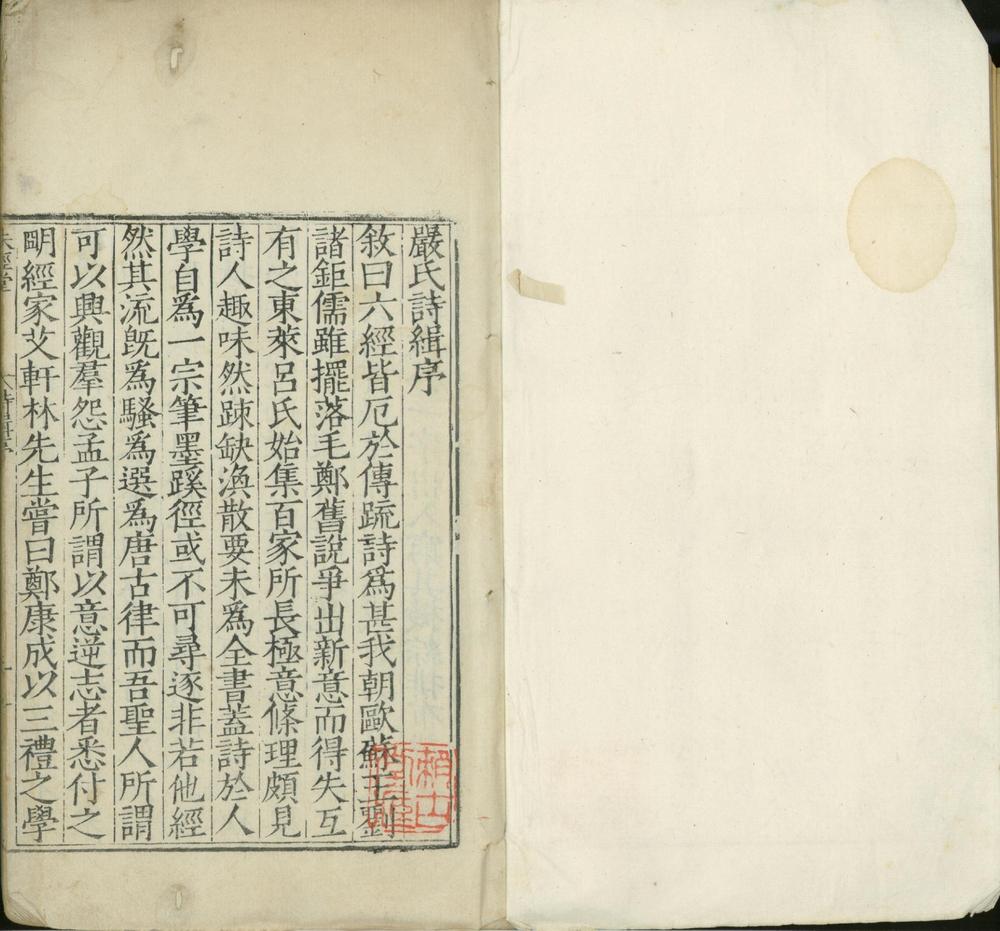 嚴氏詩緝序
敘曰六經皆厄於傳䟽詩爲甚我朝歐蘇王劉
諸鉅儒雖擺落毛鄭舊說爭出新意而得失互
有之東萊呂氏始集百家所長極意條理頗見
詩人趣味然踈缺渙散要未爲全書蓋詩於人
學自爲一宗筆墨蹊徑或不可尋逐非若他經
然其流旣爲騷爲選爲唐古律而吾聖人所謂
可以興觀羣怨孟子所謂以意逆志者悉付之
朙經家艾軒林先生嘗曰鄭康成以三禮之學